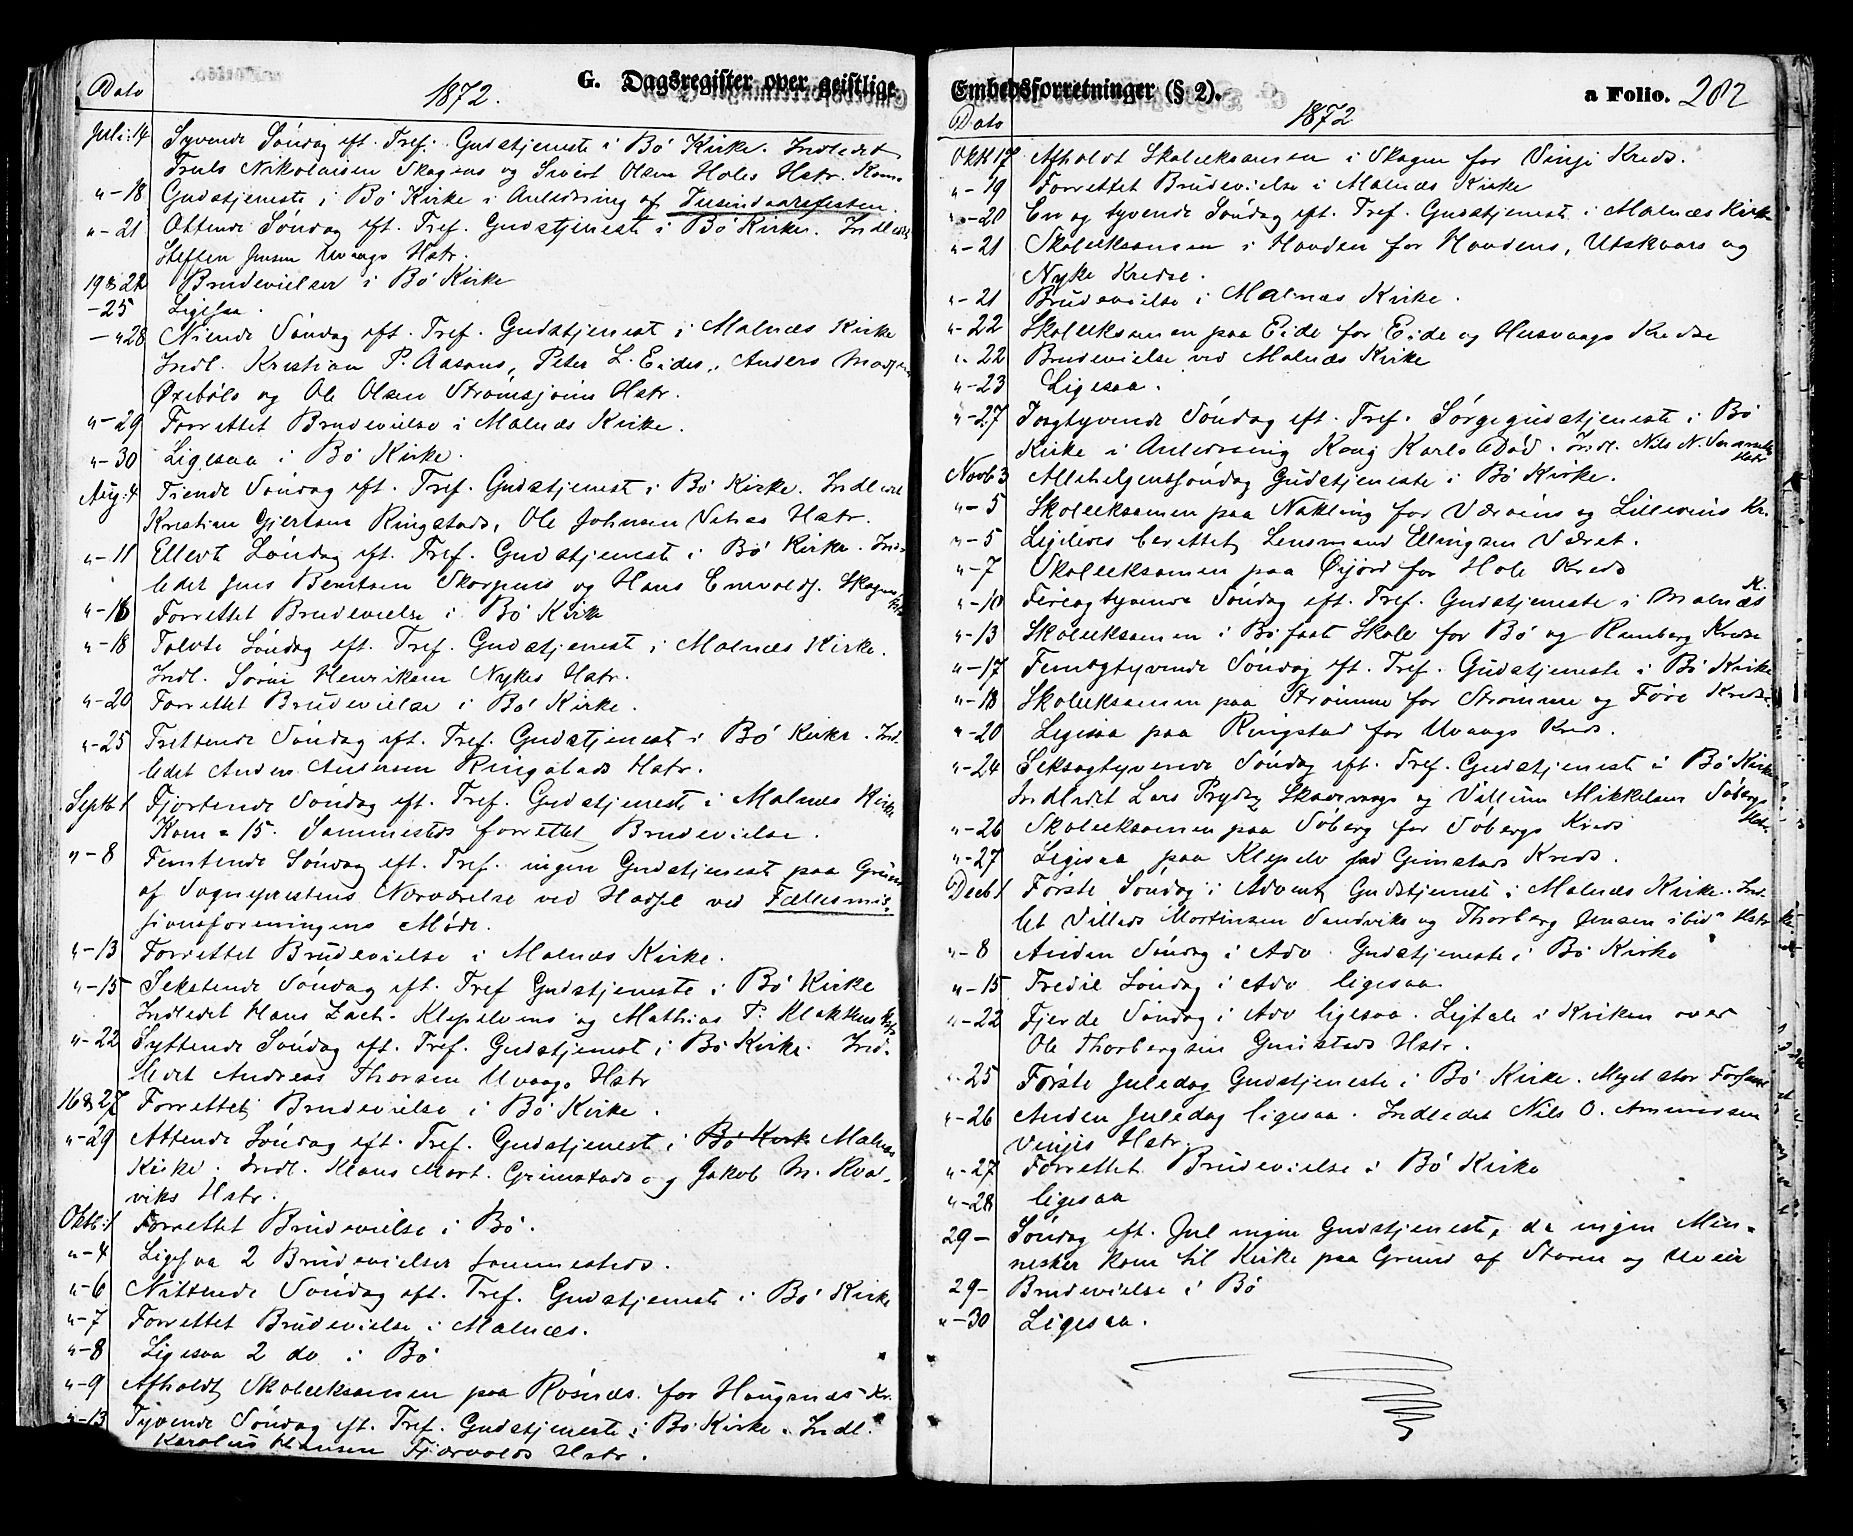 G. Dagsregister over geistlige
Dato 1872.
Juli 14 Syvende Søndag eft. Tref. Gudstjeneste i Bø Kirke. Indledet
Truls Nikolaisen Skagens og Sivert Olsen Holes Hstr. Kom=
" - 18 Gudstjeneste i Bø Kirke i Anledning af Tusindaarsfesten.
" - 21 Ottende Søndag eft. Tref. Gudstjeneste i Bø Kirke. Indledet
Steffen Jensen Uvaags Hstr.
19 & 22 Brudevielser i Bø Kirke
- 25 Ligesaa.
- " 28 Niende Søndag eft. Tref. Gudstjenest i Malnæs Kirke
Indl. Kristian P. Aasans, Peter L. Eides, Anders
og Ole Olsen Hstr.
" - 29 Forrettet Brudevielse i Malnæs Kirke.
" - 30 Ligesaa i Bø Kirke.
Aug: 4 Tiende Søndag eft. Tref. Gudstjenest i Bø Kirke. Indledet
Kristian Gjertsen Ringstads, Ole Johnsen Hstr.
" - 11 Ellevte Søndag eft. Tref. Gudstjenest i Bø Kirke. Ind=
ledet Jens Berntsen og Hans Skagens
" - 16 Forrettet Brudevielse i Bø Kirke
" - 18 Tolvte Søndag eft. Tref. Gudstjenest i Malnæs Kirke.
Indl. Søren Henriksen Nykes Hstr.
" - 20 Forrettet Brudevielse i Bø Kirke.
" - 25 Trettende Søndag eft. Tref. Gudstjenest i Bø Kirke. Ind=
ledet Anders Andersen Ringstads Hstr.
Septb 1 Fjortende Søndag eft. Tref. Gudstjeneste i Malnæs Kirke
Kom = 15. Sammesteds forrettet Brudevielse.
" - 8 Femtende Søndag eft. Tref. ingen Gudstjenest paa Grund
af Sognepræstens Nærværelse ved Hadsel ved Fællesmis=
sionsforeningens Møde.
" - 13 Forrettet Brudevielse i Malnæs Kirke.
" - 15 Sekstende Søndag eft. Tref Gudstjeneste i Bø Kirke
Indledet Hans Zach. Klepelvens og Mathias P. Hstr
" - 22 Syttende Søndag eft. Tref. Gudstjenest i Bø Kirke. Ind=
ledet Andreas Thorsen Uvaags Hstr
16 & 27 Forrettet Brudevielse i Bø Kirke.
" - 29 Attende Søndag eft. Tref. Gudstjeneste i Bø Kirk Malnæs
Kirke. Indl. Klaus Mort. Grimstads og Jakob M. Kval=
viks Hstr.
Oktb: 1 Forrettet Brudevielse i Bø.
" - 4 Ligesaa 2 Brudevielser sammesteds.
" - 6 Nittende Søndag eft. Tref. Gudstjeneste i Bø Kirke
" - 7 Forrettet Brudevielse i Malnæs.
" - 8 Ligesaa 2 do i Bø
" - 9 Afholdt Skoleeksamen paa for Haugsnæs Kr.
" - 13 Tyvende Søndag eft. Tref. Gudstjeneste i Bø Kirke. Indl.
Karolius Hansen Fjærvolds Hstr.
Embedsforretninger (§ 2).
a Folio. 202
Dato 1872
Okt 17 Afholdt Skoleeksamen i Skagen for Vinje Kreds.
" - 19 Forrettet Brudevielse i Malnæs Kirke
" - 20 En og tyvende Søndag eft. Tref. Gudstjeneste i Malnæs Kirke
" - 21 Skoleeksamen i Hovden for Hovdens, Utskaars og
Nyke Kredse.
" - 21 Brudevielse i Malnæs Kirke.
" - 22 Skoleeksamen paa Eide for Eide og Husvaags Kredse
" 22 Brudevielse ved Malnæs Kirke
" - 23 Ligesaa.
" - 27 Toogtyvende Søndag eft. Tref. Sørgegudstjeneste i Bø
Kirke i Anledning Kong Karls Død. Indl. Nils N. Hstr
Novb 3 Allehelgenssøndag Gudstjeneste i Bø Kirke.
" - 5 Skoleeksamen paa Nækling for Værøens og Lilleøens Kr.
" - 5 Ligeledes berettet Lensmand Ellingsen Været.
" - 7 Skoleeksamen paa Øijord for Hole Kreds
" - 10 Fireogtyvende Søndag eft. Tref. Gudstjeneste i Malnæs K.
" - 13 Skoleeksamen i Bø faste Skole for Bø og Ramberg Kredse
" - 17 Femogtyvende Søndag eft. Tref. Gudstjeneste i Bø Kirke
" - 18 Skoleeksamen paa Strømme for Strømme og Føre Kredse
" - 20 Ligesaa paa Ringstad for Uvaags Kreds.
" - 24 Seksogtyvende Søndag eft. Tref. Gudstjeneste i Bø Kirke
Indledet Lars Prydz Skaarvaags og Villum Mikkelsen Søbergs Hstr.
" - 26 Skoleeksamen paa Søberg for Søbergs Kreds
" - 27 Ligesaa paa Klepelv for Grimstads Kreds.
Decb 1 Første Søndag i Advent Gudstjeneste i Malnæs Kirke. Ind=
let Villads Mortinsen Sandviks og Thorberg Jensen ibid. Hstr
" - 8 Anden Søndag i Adv. Gudstjeneste i Bø Kirke
" - 15 Tredie Søndag i Adv ligesaa
" - 22 Fjerde Søndag i Adv ligesaa. Ligtale i Kirken over
Ole Thorbergsen Grimstads Hstr.
" 25 Første Juledag Gudstjeneste i Bø Kirke. Meget stor Forsaml
" - 26 Anden Juledag ligesaa. Indledet Nils O. Ammundsen
Vinjes Hstr.
" - 27 Forrettet Brudevielse i Bø Kirke
" - 28 ligesaa
29 - Søndag eft. Jul ingen Gudstjeneste, da ingen Men=
nesker kom til Kirke paa Grund af Storm og Uveir
29 - Brudevielse i Bø
" - 30 Ligesaa.